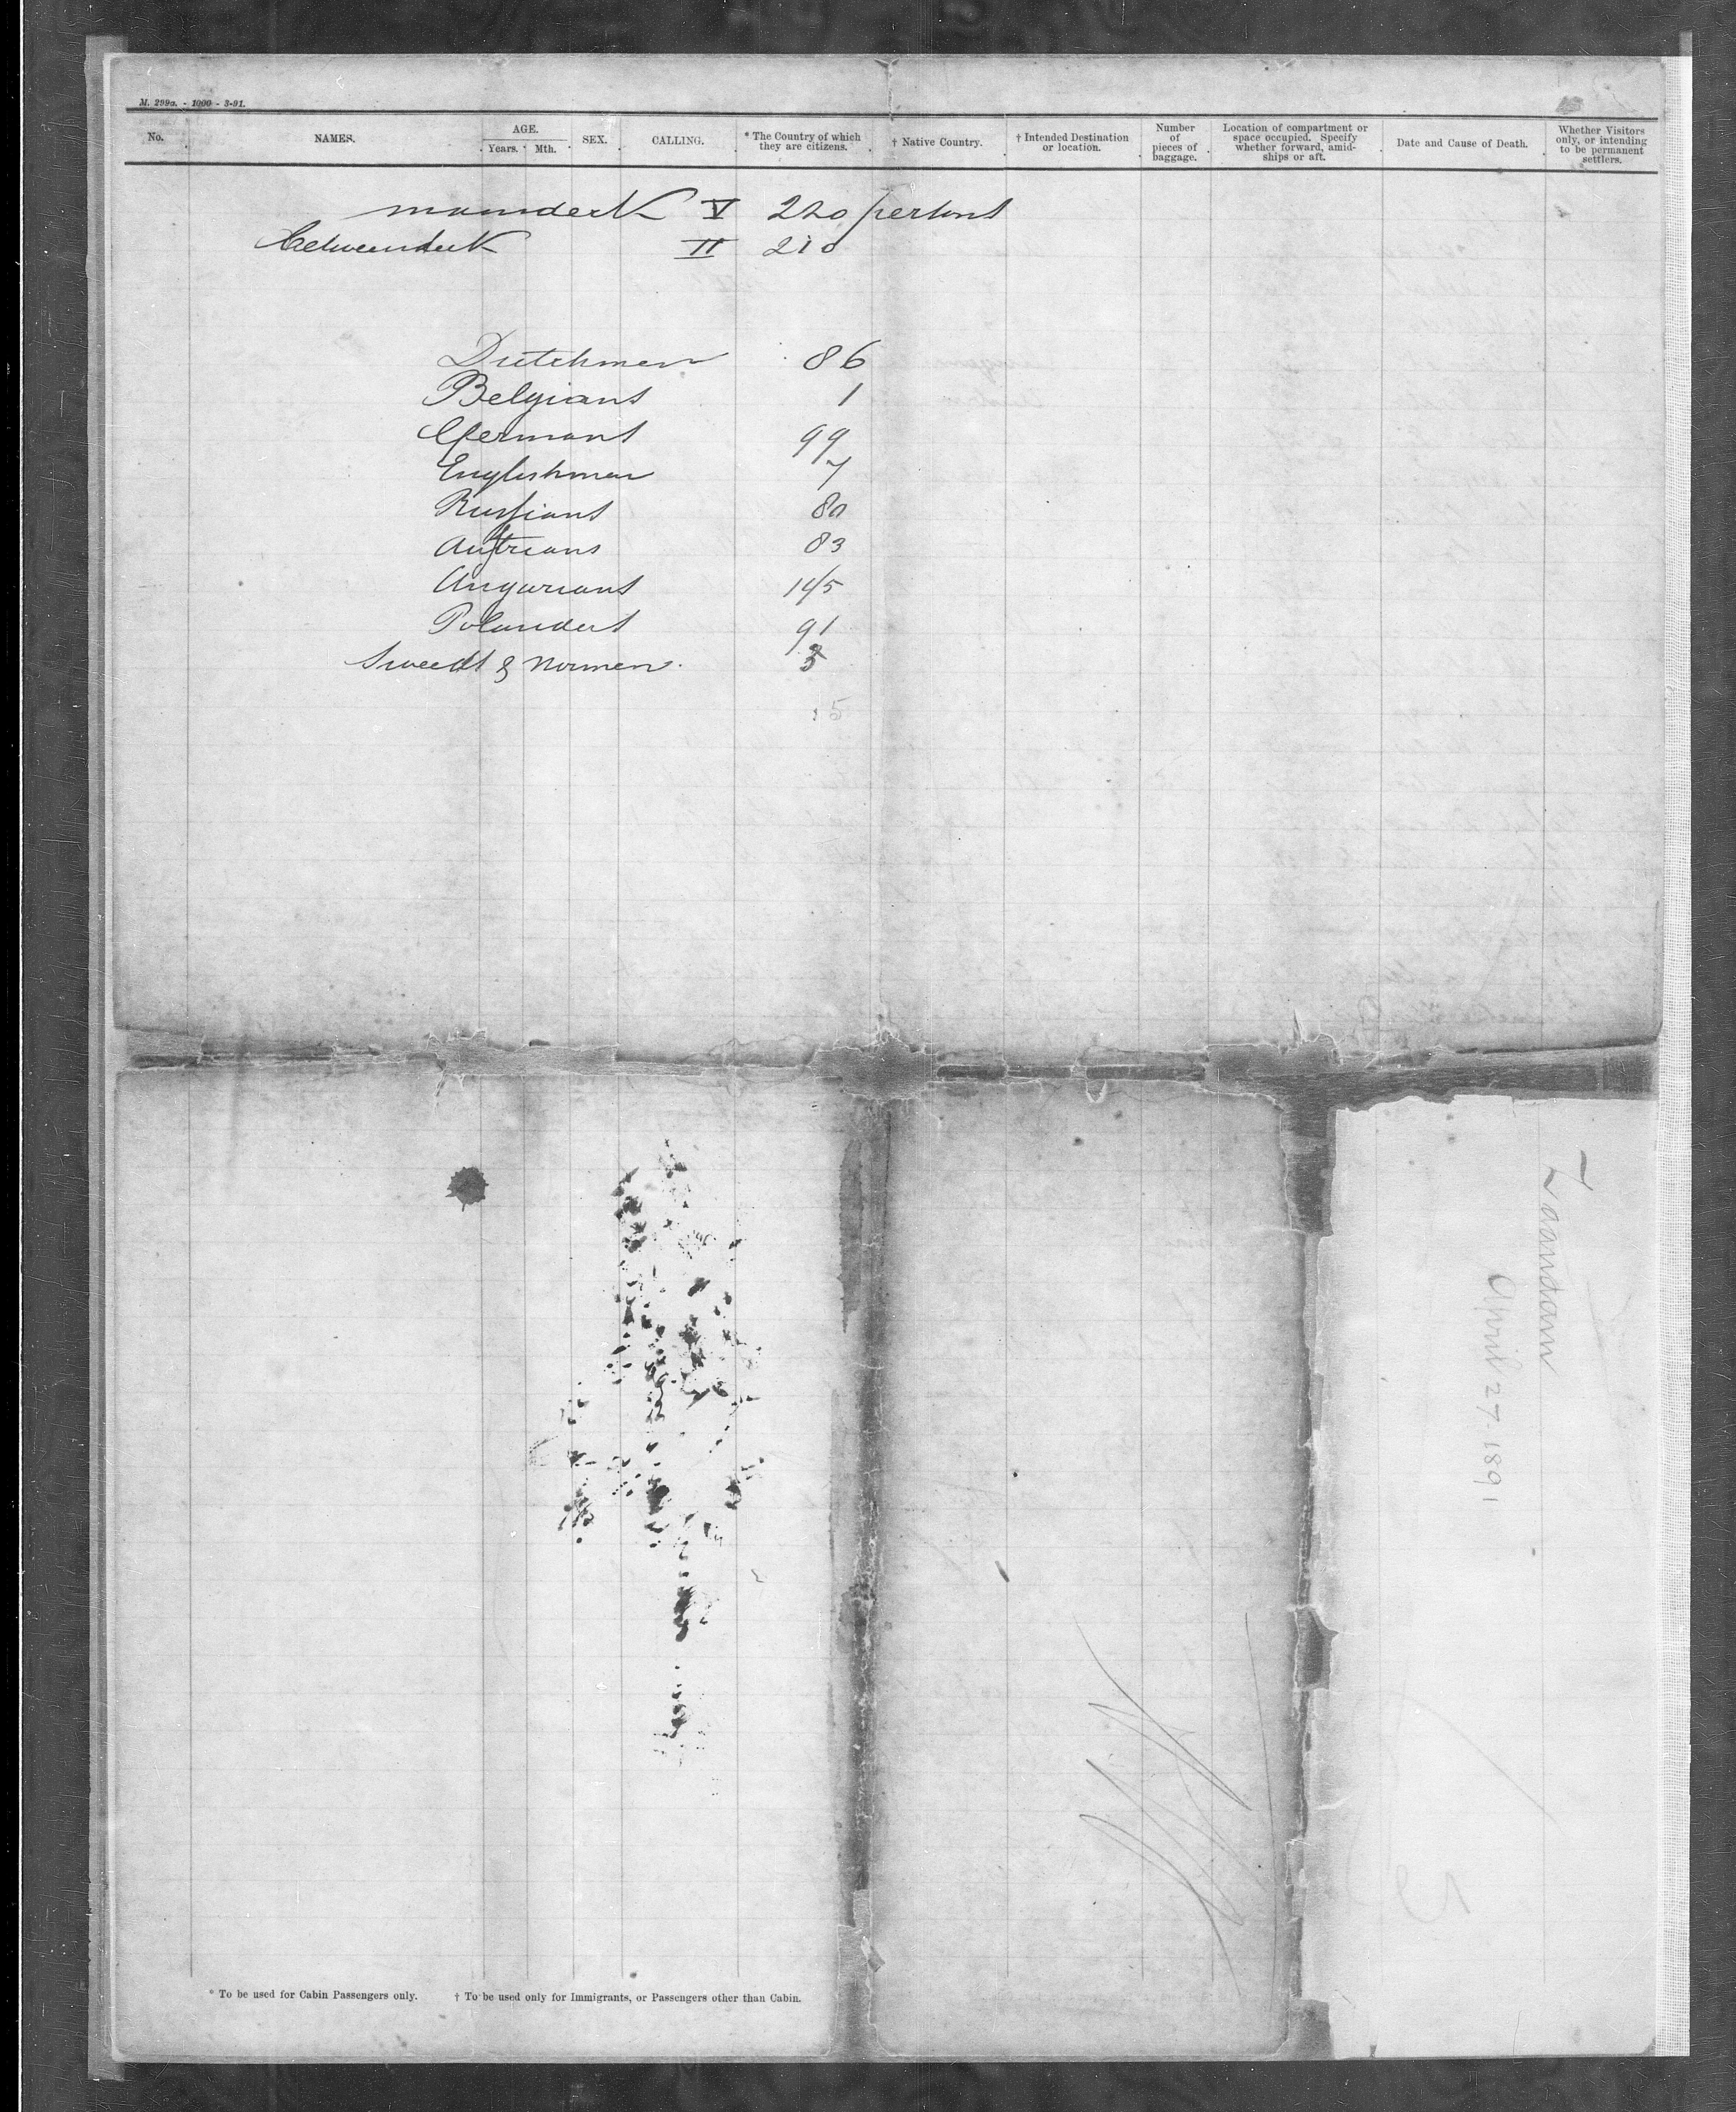 M. 299a. - 1000 - 3-91.
No. NAMES. AGE. Years. Mth. SEX. CALLING. * The Country of which they are citizens. † Native Country. † Intended Destination or location. Number of pieces of baggage. Location of compartment or space occupied. Specify whether forward, amidships or aft. Date and Cause of Death. Whether Visitors only, or intending to be permanent settlers.
maindeck V 220 persons
Betweendeck II 210
Dutchmen 86
Belgians 1
Germans 99
Englishmen 7
Russians 80
Austrians 83
Ungarians
Polanders 91
Sweeds & Normen.
Zaandam
April 27-1891
* To be used for Cabin Passengers only. † To be used only for Immigrants, or Passengers other than Cabin.